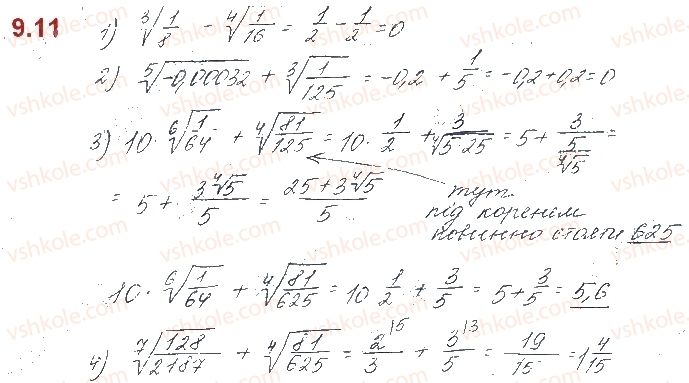 9.11
1) ∛(1/8) - ∜(1/16) = 1/2 - 1/2 = 0
2) ⁵√(-0,00032) + ∛(1/125) = -0,2 + 1/5 = -0,2+0,2=0
3) 10 · ⁶√(1/64) + ∜(81/125) = 10 · 1/2 + 3/∜(5·25) = 5 + 3/(5/∜5) =
= 5 + 3∜5/5 = (25+3∜5)/5
тут.
під коренем
повинно стояти 625
10 · ⁶√(1/64) + ∜(81/625) = 10 1/2 + 3/5 = 5 + 3/5 = 5,6
4) ⁷√(128/2187) + ∜(81/625) = 2/3 ⁽⁵ + 3/5 ⁽³ = 19/15 = 1 4/15
vshkole.com